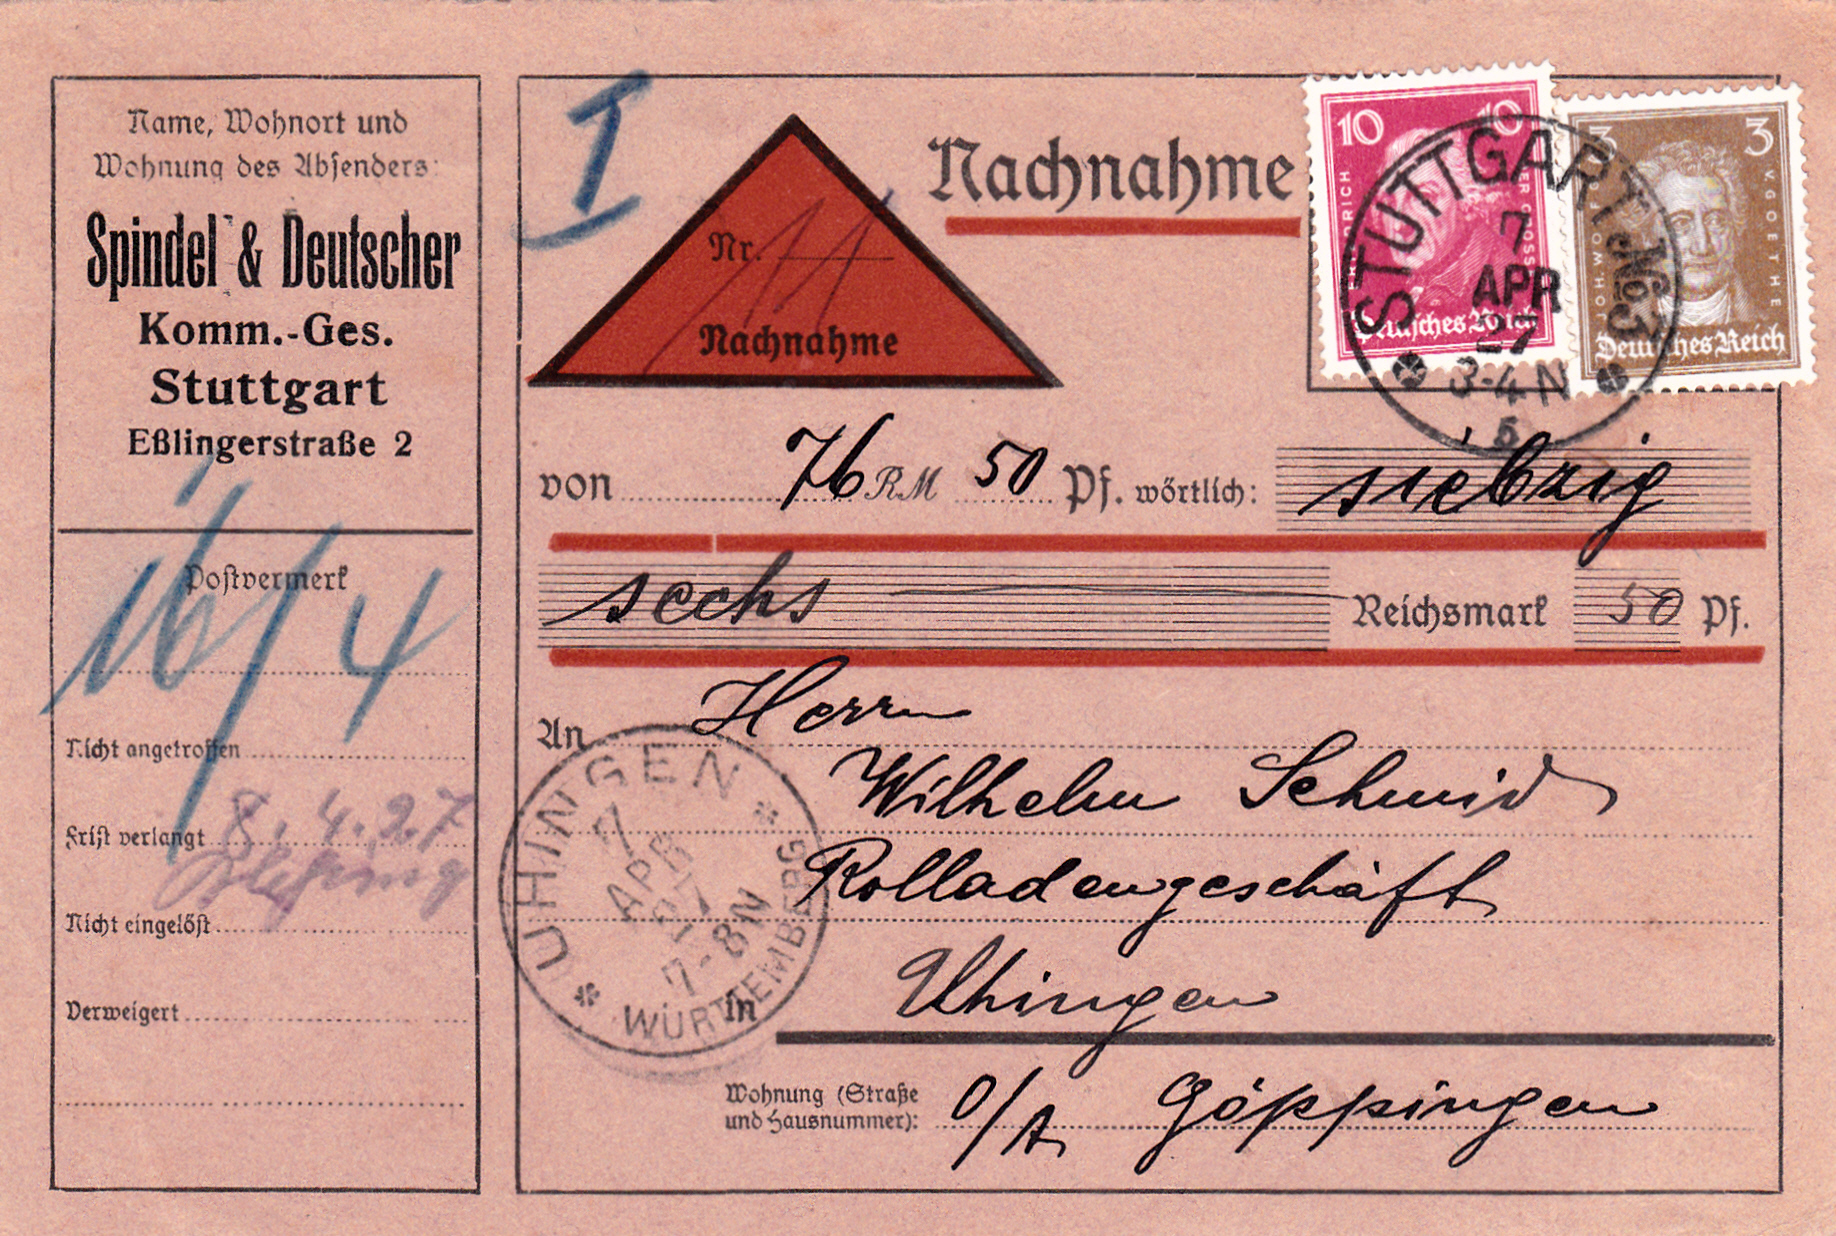 Name, Wohnort und
Wohnung des Absenders:
Spindel & Deutscher
Komm.-Ges.
Stuttgart
Eßlingerstraße 2
Postvermerk
16/4
Nicht angetroffen
Frist verlangt
8. 4. 27
Nicht eingelöst
Verweigert
I
Nr. 11
Nachnahme
Nachnahme
10 10
FRIEDRICH DER GROSSE
Deutsches Reich
3 3
JOH. WOLFG. V. GOETHE
Deutsches Reich
STUTTGART No 3
7
APR
27
3-4 N
von 76 RM 50 Pf. wörtlich: siebzig
sechs Reichsmark 50 Pf.
An Herrn
Wilhelm Schmid
Rolladengeschäft
in Uhingen
Wohnung (Straße
und Hausnummer):
O/A. Göppingen
UHINGEN
7
APR
27
7-8 N
WÜRTTEMBERG